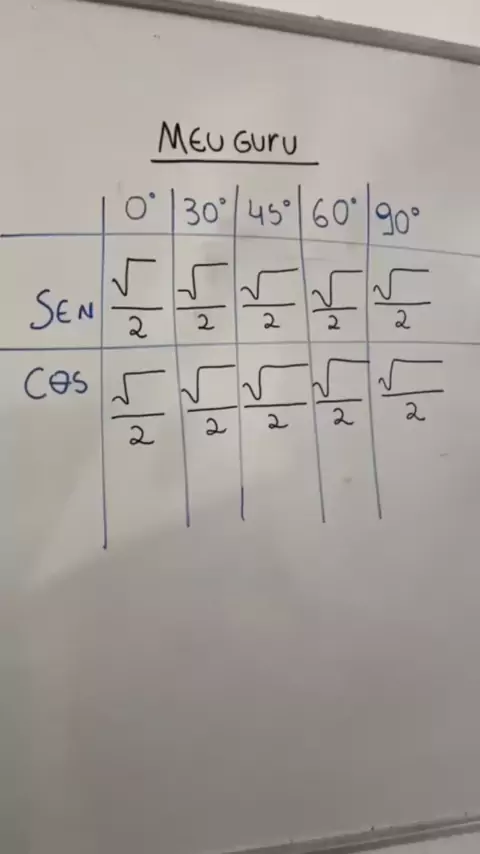 MEU GURU
0° 30° 45° 60° 90°
SEN √/2 √/2 √/2 √/2 √/2
COS √/2 √/2 √/2 √/2 √/2